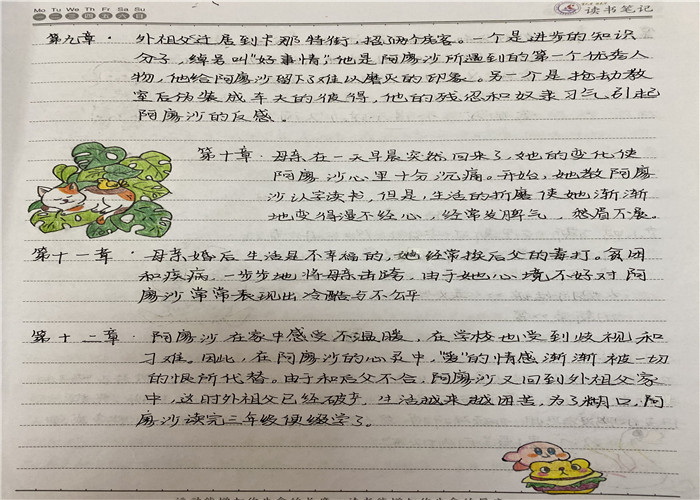 Mo Tu We Th Fr Sa Su
一 二 三 四 五 六 日
读书笔记
第九章· 外祖父迁居到卡那特街,招了两个房客。一个是进步的知识
分子,绰号叫"好事情",他是阿廖沙所遇到的第一个优秀人
物,他给阿廖沙留下了难以磨灭的印象。另一个是抢劫教
室后伪装成车夫的彼得,他的残忍和奴隶习气引起
阿廖沙的反感。
第十章·母亲在一天早晨突然回来了,她的变化使
阿廖沙心里十分沉痛。开始,她教阿廖
沙认字读书,但是,生活的折磨使她渐渐
地变得漫不经心,经常发脾气,愁眉不展。
第十一章· 母亲婚后生活是不幸福的,她经常挨后父的毒打。贫困
和疾病,一步步地将母亲击跨,由于她心境不好对阿
廖沙常常表现出冷酷与不公平
第十二章· 阿廖沙在家中感受不温暖,在学校也受到歧视和
刁难。因此,在阿廖沙的心灵中,"爱"的情感渐渐被一切
的恨所代替。由于和后父不合,阿廖沙又回到外祖父家
中,这时外祖父已经破产,生活越来越困苦,为了糊口,阿
廖沙读完三年级便缀学了。